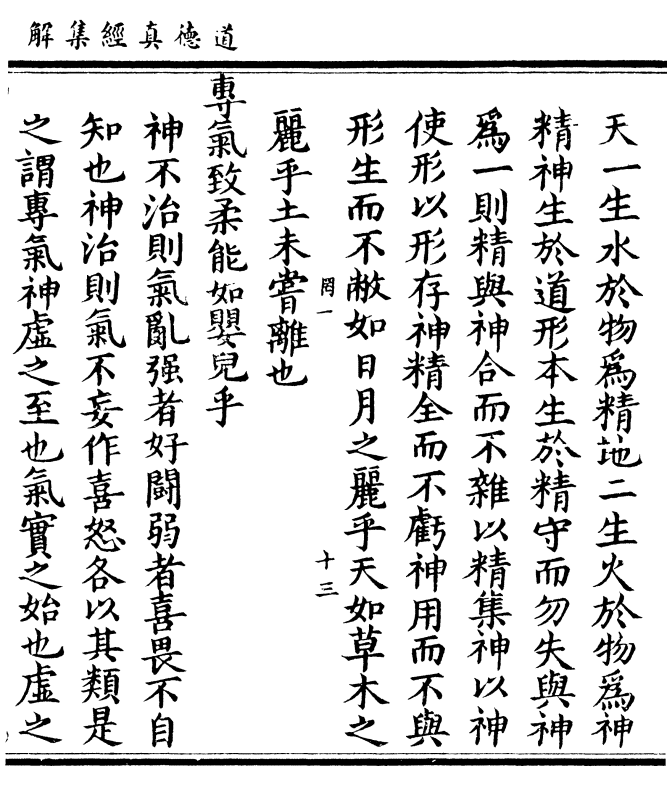 道德真經集解
天一生水於物爲精地二生火於物爲神
精神生於道形本生於精守而勿失與神
爲一則精與神合而不雜以精集神以神
使形以形存神精全而不虧神用而不與
形生而不敝如日月之麗乎天如草木之
罔一
十三
麗乎土未嘗離也
專氣致柔能如嬰兒乎
神不治則氣亂强者好鬪弱者喜畏不自
知也神治則氣不妄作喜怒各以其類是
之謂專氣神虛之至也氣實之始也虛之